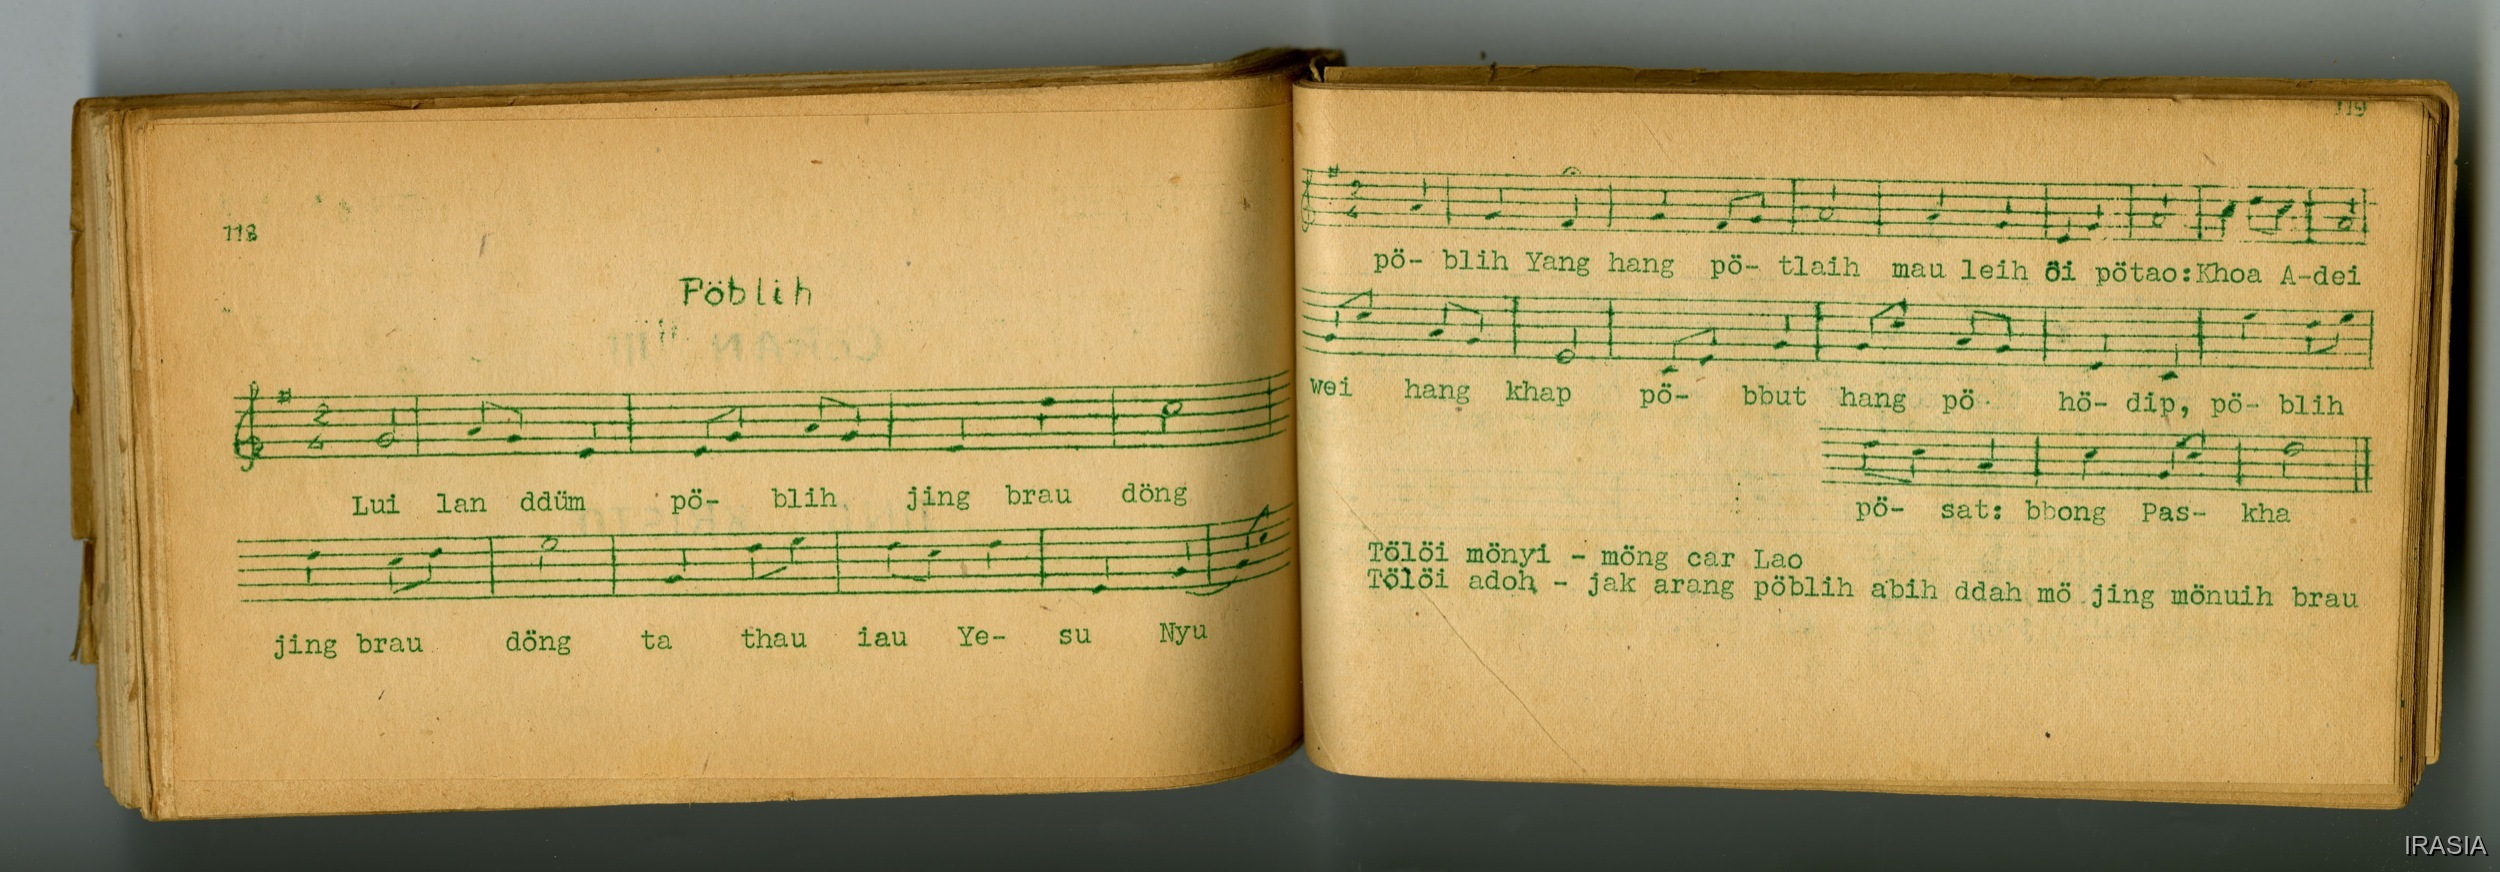 118
Pöblih
2
4
Lui lan ddüm pö- blih jing brau döng
jing brau döng ta thau iau Ye- su Nyu
119
2
4
pö- blih Yang hang pö- tlaih mau leih öi pötao:Khoa A-dei
wei hang khap pö- bbut hang pö hö- dip, pö- blih
pö- sat: bbong Pas- kha
Tölöi mönyi - möng car Lao
Tölöi adoh - jak arang pöblih abih ddah mö jing mönuih brau
IRASIA